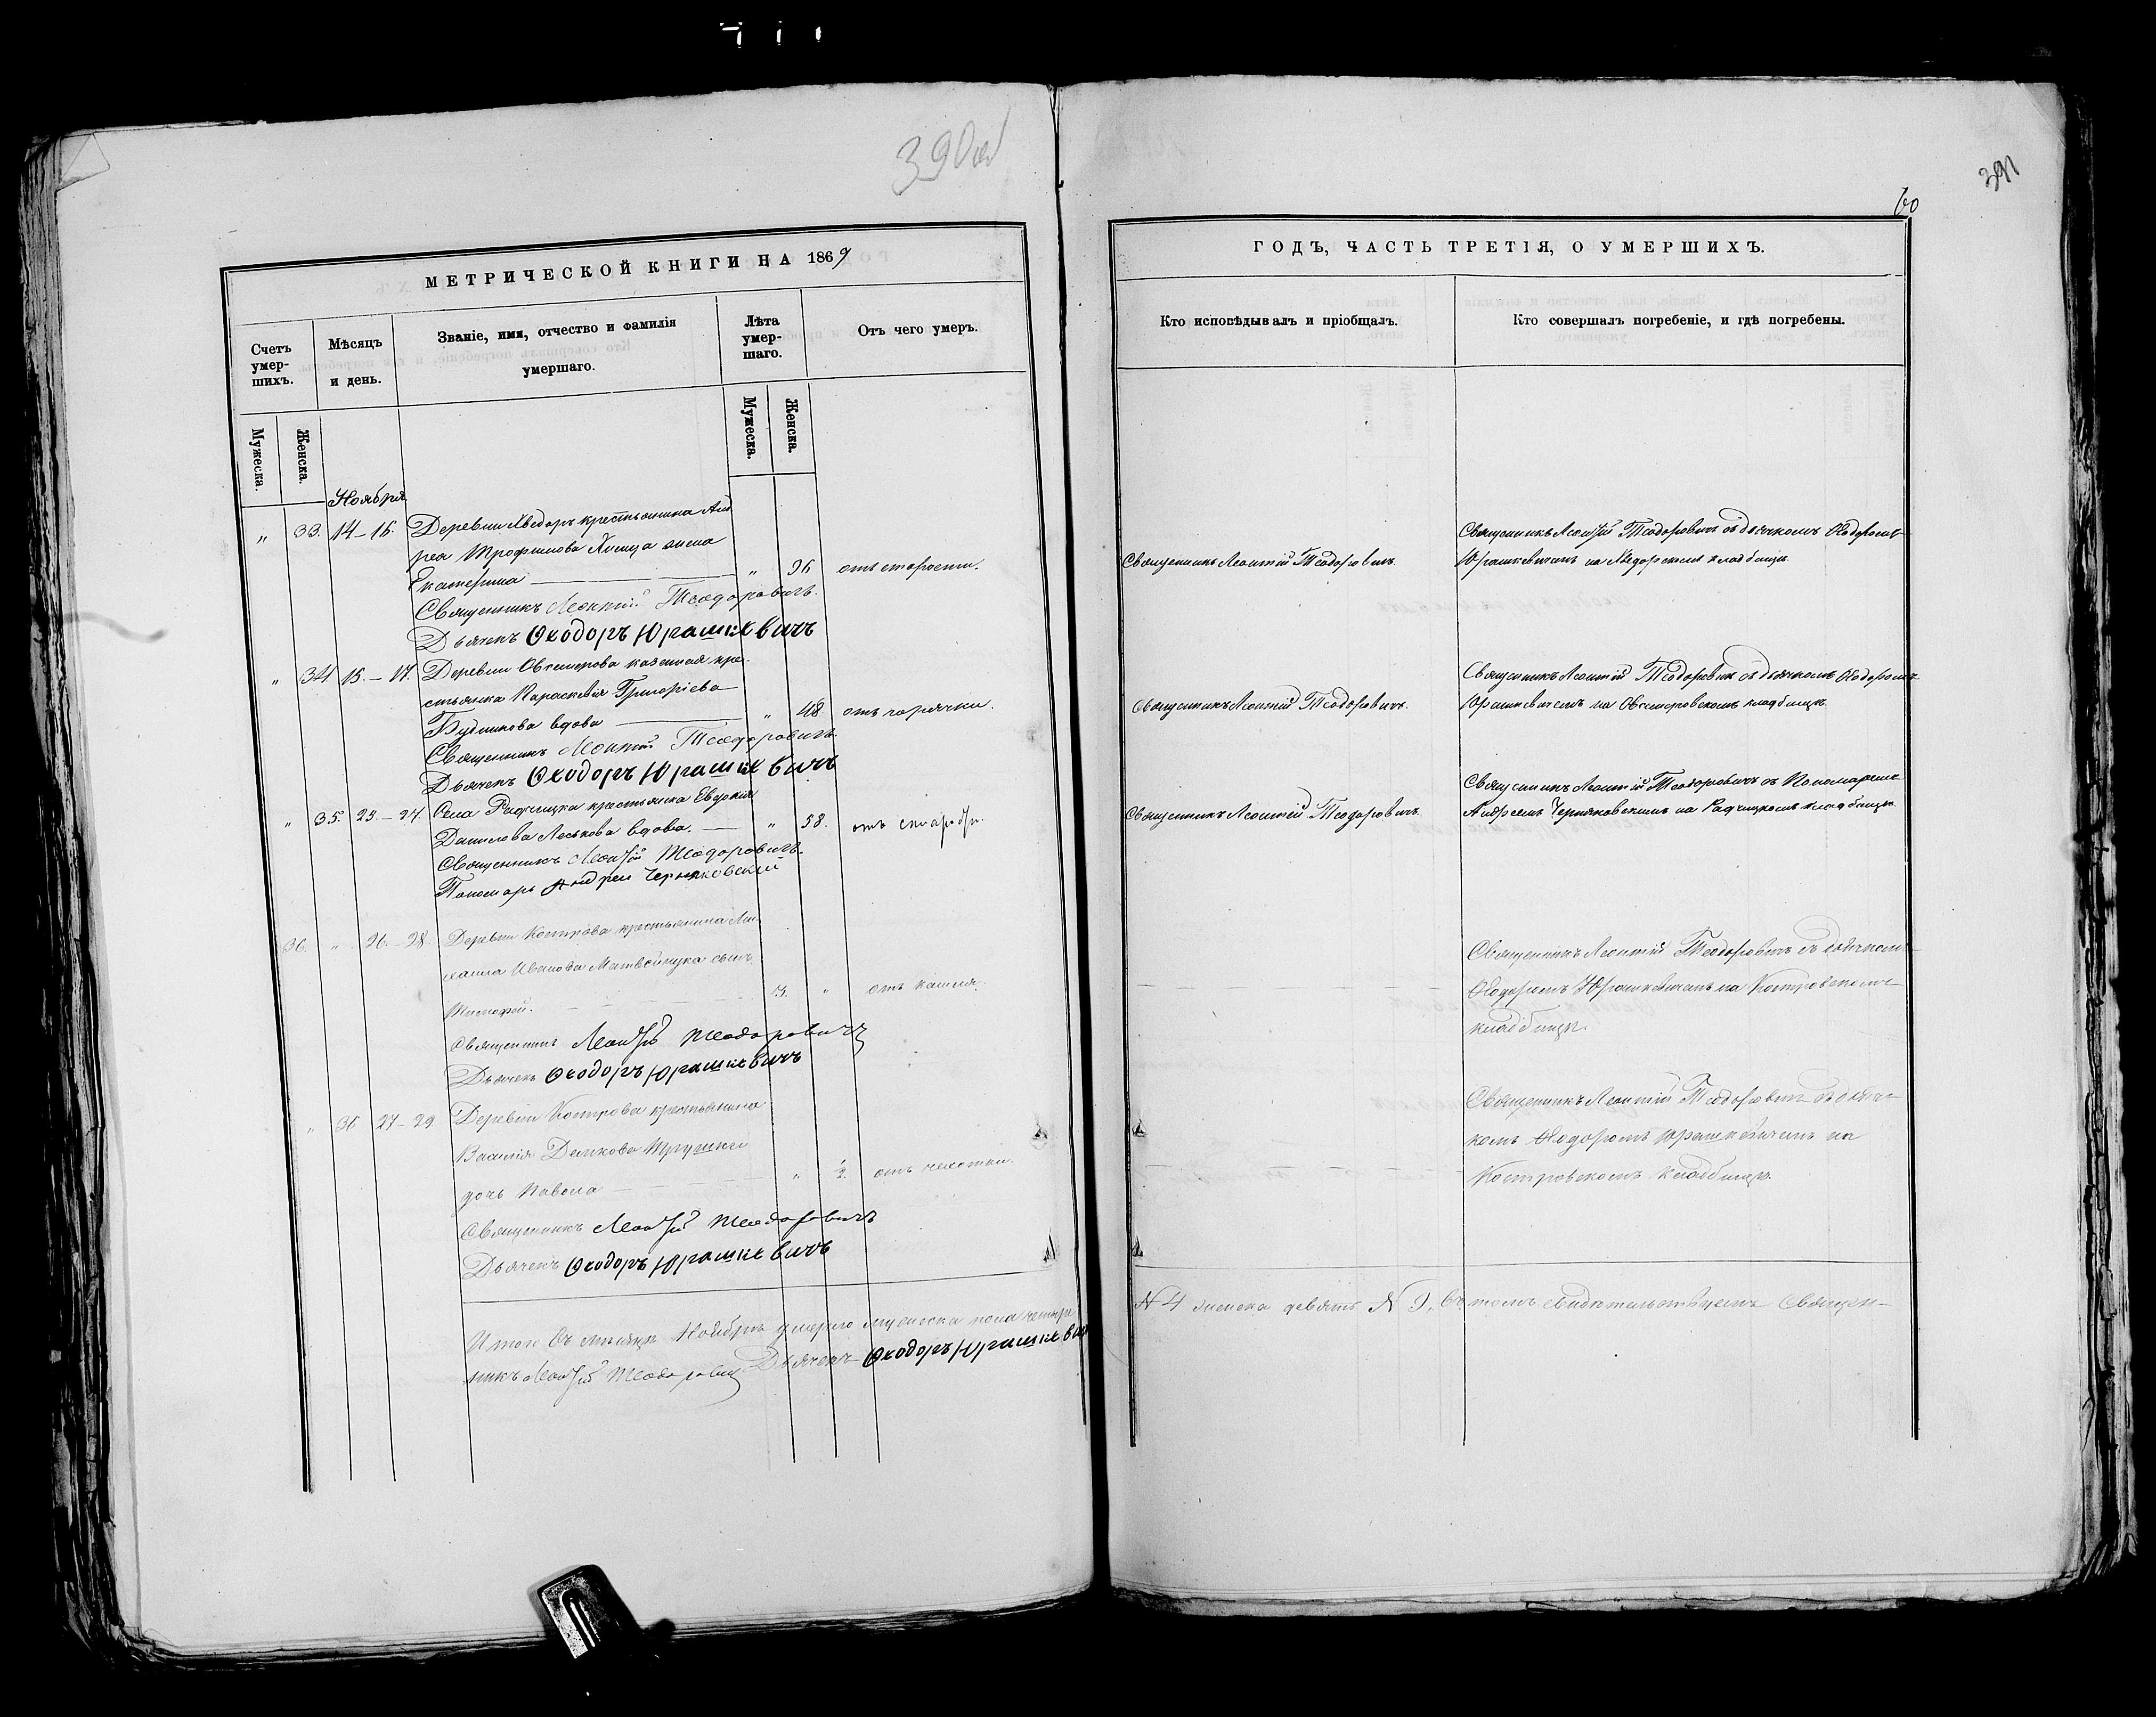 390об
МЕТРИЧЕСКОЙ КНИГИ НА 1869
Счетъ умер-шихъ.
Мѣсяцъ и день.
Званіе, имя, отчество и фамилія умершаго.
Лѣта умер-шаго.
Отъ чего умеръ.
Мужеска.
Женска.
Мужеска.
Женска.
Ноября
" 33. 14–16. Деревни Хведоръ крестьянина Анд
рея Трофимова жена
Екатерина " 96 отъ старости.
Священникъ Леонтій Теодоровичъ.
Дьячекъ Ѳеодоръ Юрашкевичъ
" 34 15.–17. Деревни казенная кре-
стьянка Параскевія Григоріева
вдова " 48 отъ горячки.
Священникъ Леонтій Теодоровичъ.
Дьячекъ Ѳеодоръ Юрашкевичъ
" 35. 25.–27. Села Радчицка крестьянка Евдокія
Данилова Леськова вдова. " 58. отъ
Священникъ Леонтій Теодоровичъ.
Пономарь Андрей Черняковскій
36. " 26.–28. Деревни Кострова крестьянина Ми-
хаила Иванова сынъ
Тимофей. 3. " отъ кашля.
Священникъ Леонтій Теодоровичъ
Дьячекъ Ѳеодоръ Юрашкевичъ
" 36 27–29 Деревни Кострова крестьянина
Василія
дочь " 1/2. отъ чахотки.
Священникъ Леонтій Теодоровичъ
Дьячекъ Ѳеодоръ Юрашкевичъ
Итого въ мѣсяцѣ Ноябрѣ умерло мужеска пола четыре
никъ Леонтій Теодоровичъ Дьячекъ Ѳеодоръ Юрашкевич
391
60
ГОДЪ, ЧАСТЬ ТРЕТІЯ, О УМЕРШИХЪ.
Кто исповѣдывалъ и пріобщалъ.
Кто совершалъ погребеніе, и гдѣ погребены.
Священникъ Леонтій Теодоровичъ съ дьячкомъ Ѳеодоромъ
Священникъ Леонтій Теодоровичъ.
Юрашкевичемъ на кладбищѣ.
Священникъ Леонтій Теодоровичъ съ дьячкомъ Ѳеодоромъ
Священникъ Леонтій Теодоровичъ.
Юрашкевичемъ на кладбищѣ.
Священникъ Леонтій Теодоровичъ съ Пономаремъ
Священникъ Леонтій Теодоровичъ.
Андреемъ Черняковскимъ на Радчицкомъ кладбищѣ.
Священникъ Леонтій Теодоровичъ съ дьячкомъ
Ѳеодоромъ Юрашкевичемъ на Костровскомъ
кладбищѣ.
Священникъ Леонтій Теодоровичъ съ дьяч-
комъ Ѳеодоромъ Юрашкевичемъ на
Костровскомъ кладбищѣ.
N 4 женска девять N 9. Въ томъ свидѣтельствуемъ Священ-